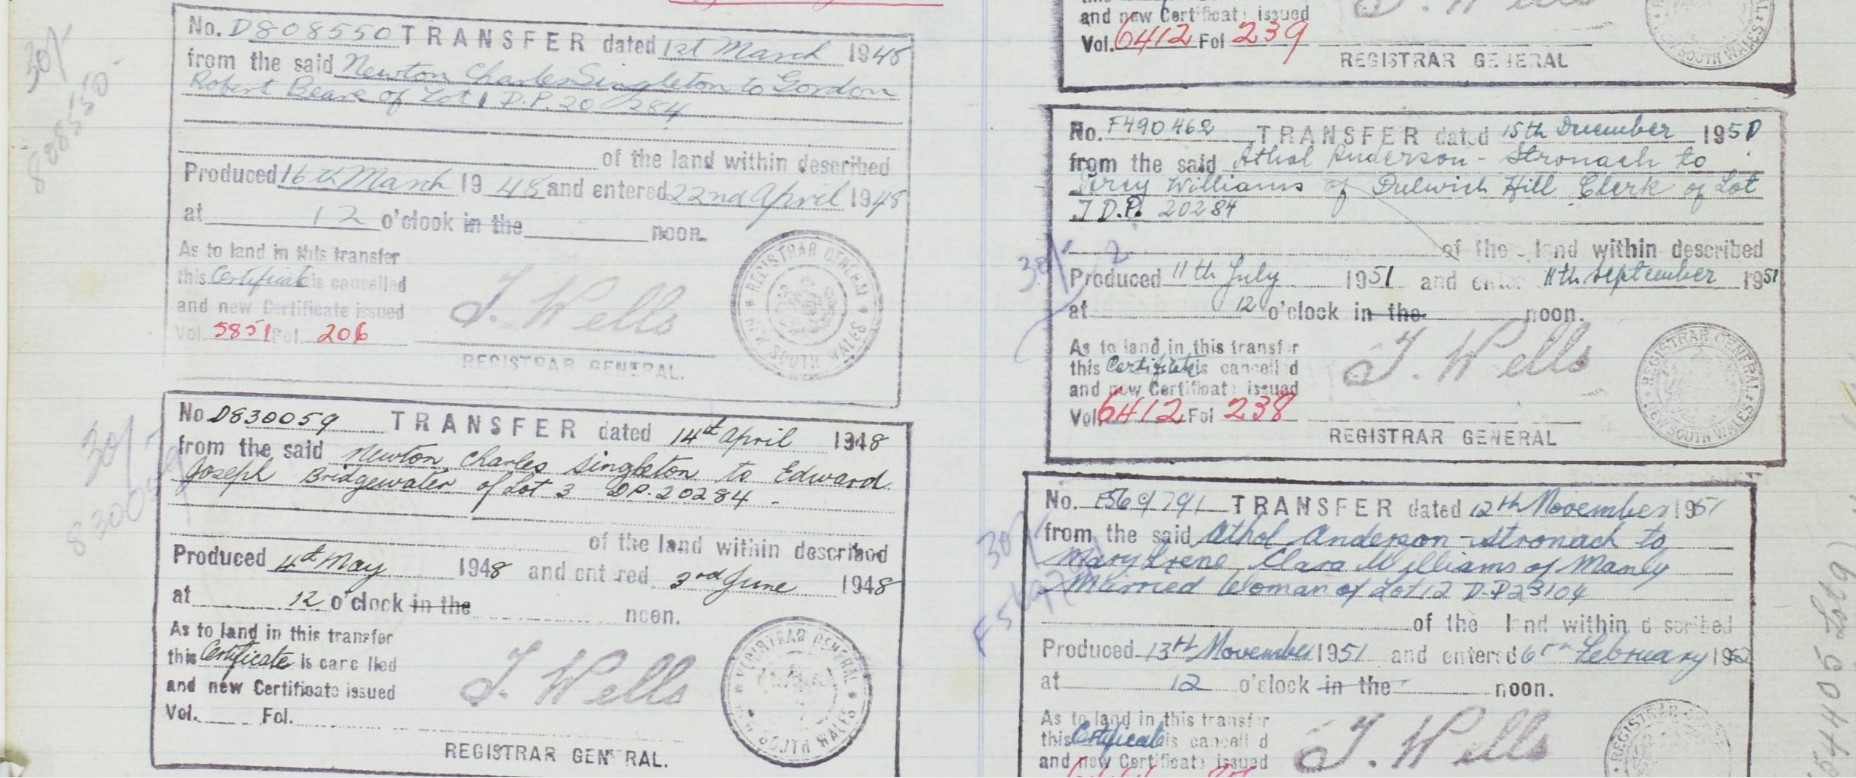 30/-
808550
No. D808550 TRANSFER dated 1st March 1948
from the said Newton Charles Singleton to Gordon
Robert Beare of Lot 1 D.P. 20284
of the land within described
Produced 16th March 1948 and entered 22nd April 1948
at 12 o'clock in the noon.
As to land in this transfer
this Certificate is cancelled
and new Certificate issued
Vol. 5851 Fol. 206
J. Wells
REGISTRAR GENERAL.
REGISTRAR GENERAL
NEW SOUTH WALES
30/-
830059
No D830059 TRANSFER dated 14th April 1948
from the said Newton Charles Singleton to Edward
Joseph Bridgewater of Lot 3 D.P. 20284 -
of the land within described
Produced 4th May 1948 and entered 3rd June 1948
at 12 o'clock in the noon.
As to land in this transfer
this Certificate is cancelled
and new Certificate issued
Vol. Fol.
J. Wells
REGISTRAR GENERAL.
REGISTRAR GENERAL
NEW SOUTH WALES
and new Certificate issued
Vol. 6412 Fol 239
J. Wells
REGISTRAR GENERAL
NEW SOUTH WALES
No. F490462 TRANSFER dated 15th December 1950
from the said Athol Anderson-Stronach to
Percy Williams of Dulwich Hill Clerk of Lot
7 D.P. 20284
of the land within described
30/-
Produced 11th July 1951 and entered 11th September 1951
at 12 o'clock in the noon.
As to land in this transfer
this Certificate is cancelled
and new Certificate issued
Vol 6412 Fol 238
J. Wells
REGISTRAR GENERAL
REGISTRAR GENERAL
NEW SOUTH WALES
30/-
No. F569791 TRANSFER dated 12th November 1951
from the said Athol Anderson-Stronach to
Mary Irene Clara Williams of Manly
Married Woman of Lot 12 D.P 23104
of the land within described
Produced 13th November 1951 and entered 6th February 1952
at 12 o'clock in the noon.
As to land in this transfer
this Certificate is cancelled
and new Certificate issued
J. Wells
REGISTRAR GENERAL